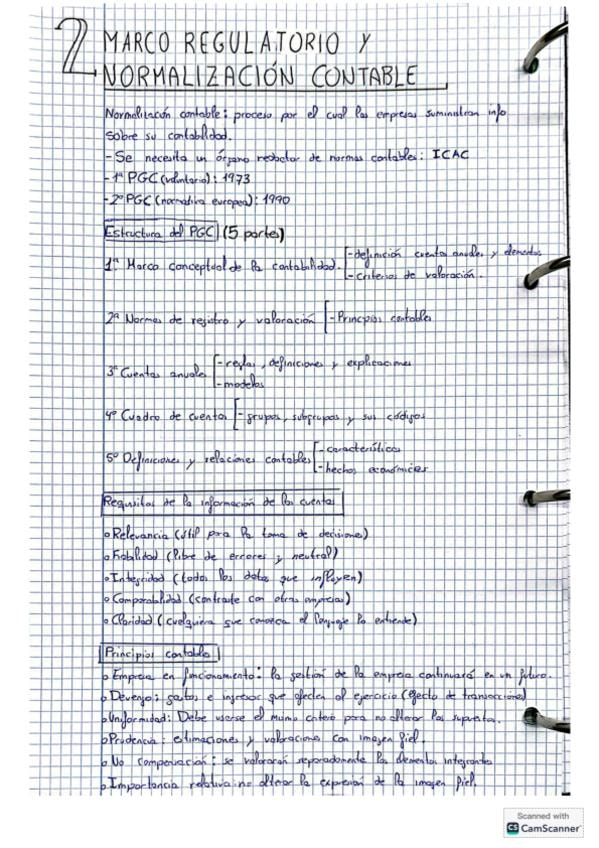 2 MARCO REGULATORIO Y
NORMALIZACIÓN CONTABLE
Normalización contable: proceso por el cual las empresas suministran info
sobre su contabilidad.
- Se necesita un órgano redactor de normas contables: ICAC
- 1º PGC (voluntario): 1973
- 2º PGC (normativa europea): 1990
Estructura del PGC (5 partes)
1ª Marco conceptual de la contabilidad. - definición cuentas anuales y elementos
- criterios de valoración.
2ª Normas de registro y valoración - Principios contables
3ª Cuentas anuales - reglas, definiciones y explicaciones
- modelos
4º Cuadro de cuentas - grupos, subgrupos y sus códigos
5º Definiciones y relaciones contables - características
- hechos económicos
Requisitos de la información de las cuentas
o Relevancia (útil para la toma de decisiones)
o Fiabilidad (libre de errores y neutral)
o Integridad (todos los datos que influyen)
o Comparabilidad (contraste con otras empresas)
o Claridad (cualquiera que conozca el lenguaje lo entiende)
Principios contables
o Empresa en funcionamiento: la gestión de la empresa continuará en un futuro.
o Devengo: gastos e ingresos que afecten al ejercicio (efecto de transacciones)
o Uniformidad: Debe usarse el mismo criterio para no alterar los supuestos.
o Prudencia: estimaciones y valoraciones con imagen fiel.
o No compensación: se valorarán separadamente los elementos integrantes
o Importancia relativa: no alterar la expresión de la imagen fiel.
Scanned with
CS CamScanner